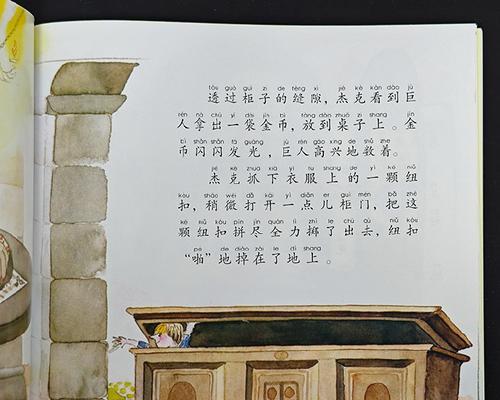 tòu guò guì zi de fèng xì jié kè kàn dào jù
透过柜子的缝隙，杰克看到巨
rén ná chū yí dài jīn bì fàng dào zhuō zi shàng jīn
人拿出一袋金币，放到桌子上。金
bì shǎn shǎn fā guāng jù rén gāo xìng de shǔ zhe
币闪闪发光，巨人高兴地数着。
jié kè zhuā xià yī fu shàng de yì kē niǔ
杰克抓下衣服上的一颗纽
kòu shāo wēi dǎ kāi yì diǎn er guì mén bǎ zhè
扣，稍微打开一点儿柜门，把这
kē niǔ kòu pīn jìn quán lì zhì le chū qù niǔ kòu
颗纽扣拼尽全力掷了出去，纽扣
pā de diào zài le dì shang
“啪”地掉在了地上。